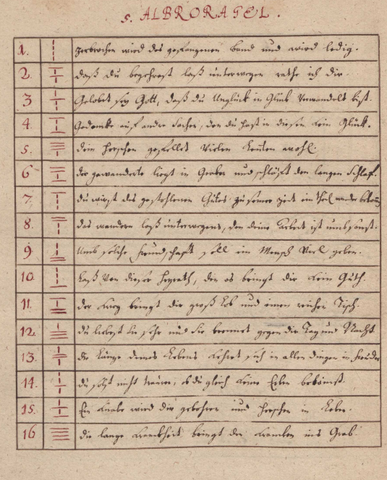 5. ALBRORATEL.
1. Zerbrochen wird des gefangenen band und wird ledig.
2. daß du begehrest laß unterwegen rathe ich dir.
3 Gelobet sey Gott, daß du Unglück in Glück verwandelt hast.
4. Gedencke auf andre sachen, den du hast in diesen kein Glück.
5. dein herrschen gefellet vielen Leuten wohl.
6 der gewanderte liegt in Graben und schläft den langen schlaf.
7. du wirst des gestohlenen Gutes zu seiner zeit ein theil wieder bekom
8 das wandern laß unterwegens, den deine Arbeit ist umbsonst.
9 Umb solche freundschafft soll ein Mensch viel geben.
10. laß von dieser Heyrath, den es bringt dir kein Guth.
11. der Krieg bringt dir groß Lob und einen reichen Tisch.
12. du liebest Sie sehr und Sie brennet gegen dir Tag und Nacht
13. die länge deines Lebens lehret dich in allen dingen
14. du solst nicht trauren, ob du gleich keine Erben bekömst.
15. Ein knabe wird dir gebohren und herrschen in Leben.
16 die lange kranckheit bringt den krancken ins Grab